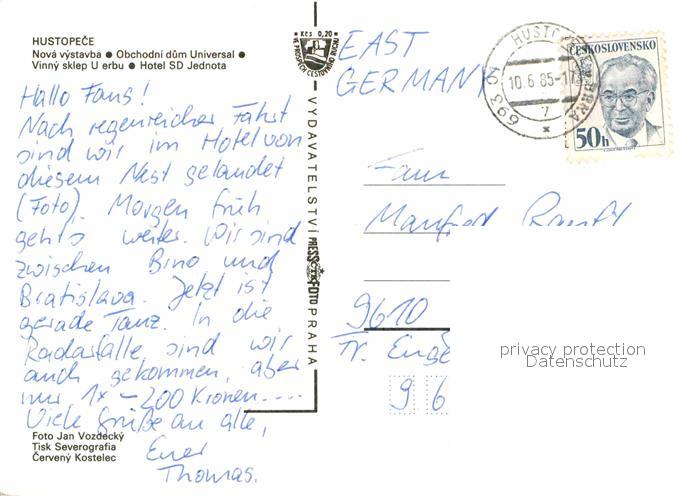 HUSTOPEČE
Nová výstavba ● Obchodní dům Universal ●
Vinný sklep U erbu ● Hotel SD Jednota
Hallo Fans!
Nach regenreicher Fahrt
sind wir im Hotel von
diesem Nest gelandet
(Foto). Morgen früh
gehts weiter. Wir sind
zwischen Brno und
Bratislava. Jetzt ist
gerade Tanz. In die
Radarfalle sind wir
auch gekommen, aber
nur 1x - 200 Kronen....
Viele Grüße an alle,
Euer
Thomas.
Foto Jan Vozdecký
Tisk Severografia
Červený Kostelec
Kčs 0,20
VE PROSPĚCH CESTOVNÍHO RUCHU
VYDAVATELSTVÍ PRESSFOTO PRAHA
EAST
GERMANY
HUSTOPEČE U BRNA
10.6.85-17
7
693 01
ČESKOSLOVENSKO
50h
Fam
Manfred
9610
96
privacy protection
Datenschutz